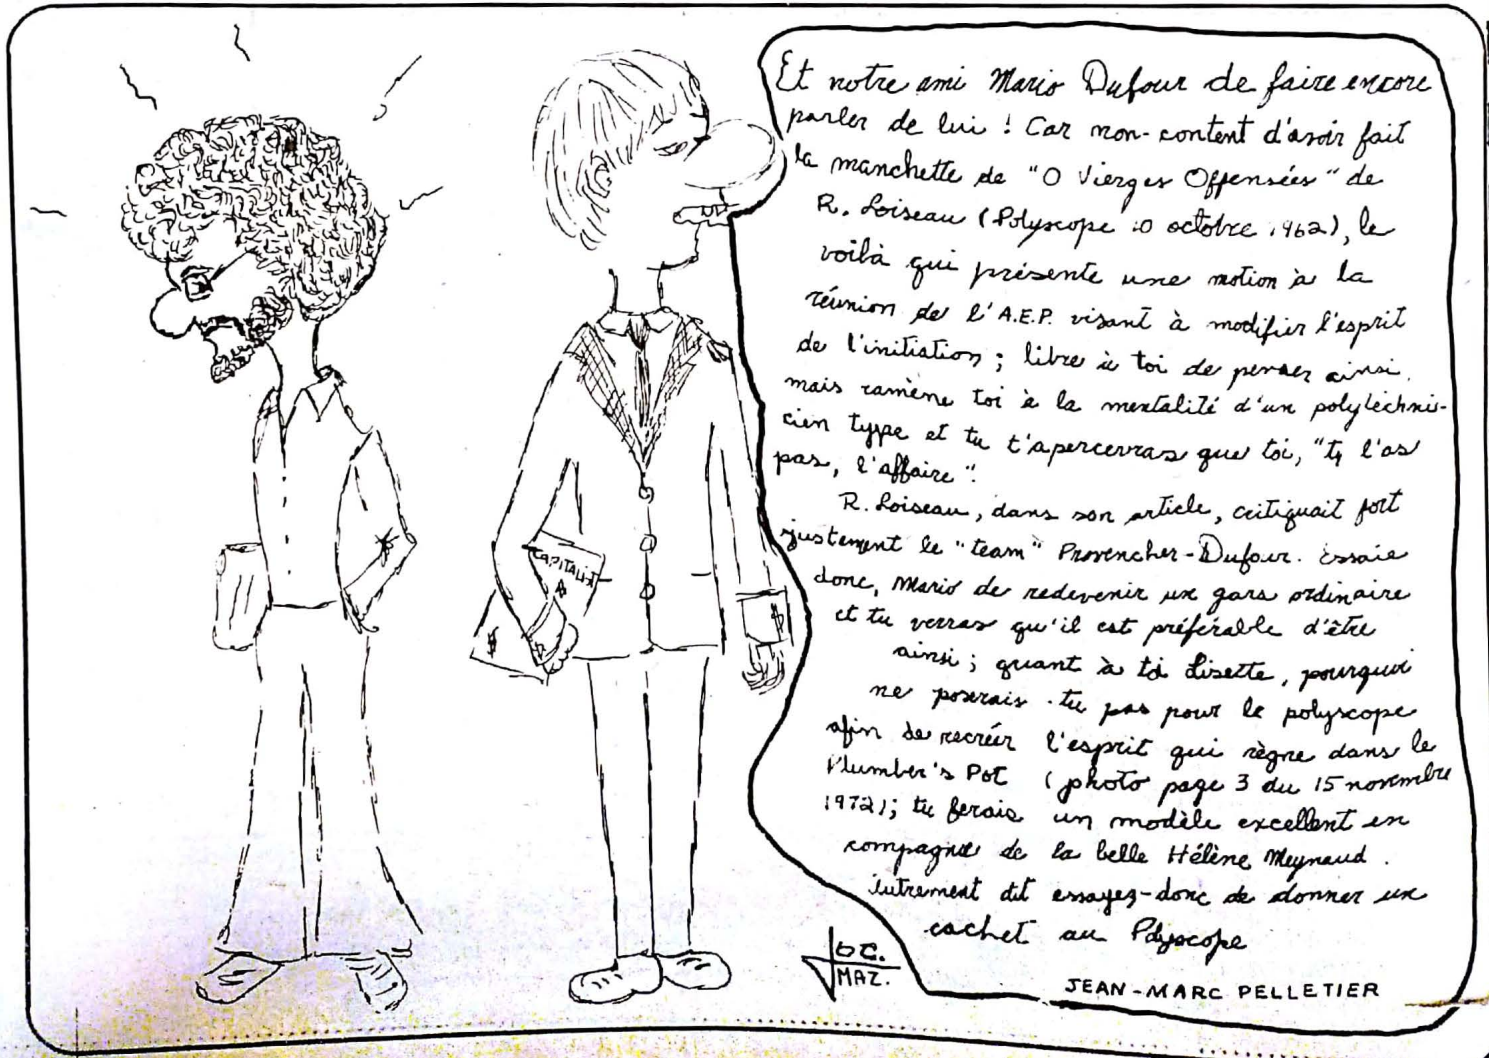 Et notre ami Mario Dufour de faire encore
parler de lui ! Car non-content d'avoir fait
la manchette de "O Vierges Offensées" de
R. Loiseau (Polyscope 10 octobre 1962), le
voilà qui présente une motion à la
réunion de l'A.E.P. visant à modifier l'esprit
de l'initiation ; libre à toi de penser ainsi.
mais ramène toi à la mentalité d'un polytechnis-
cien type et tu t'apercevras que toi, "tu l'as
pas, l'affaire".
R. Loiseau, dans son article, critiquait fort
justement le "team" Provencher-Dufour. Essaie
donc, Mario de redevenir un gars ordinaire
et tu verras qu'il est préférable d'être
ainsi ; quant à toi Lisette, pourquoi
ne poserais-tu pas pour le polyscope
afin de recréer l'esprit qui règne dans le
Plumber's Pot (photo page 3 du 15 novembre
1972); tu ferais un modèle excellent en
compagnie de la belle Hélène Meynaud.
autrement dit essayez-donc de donner un
cachet au Polyscope
JEAN-MARC PELLETIER
CAPITALIST
$
$
$
$
JOC.
MAZ.